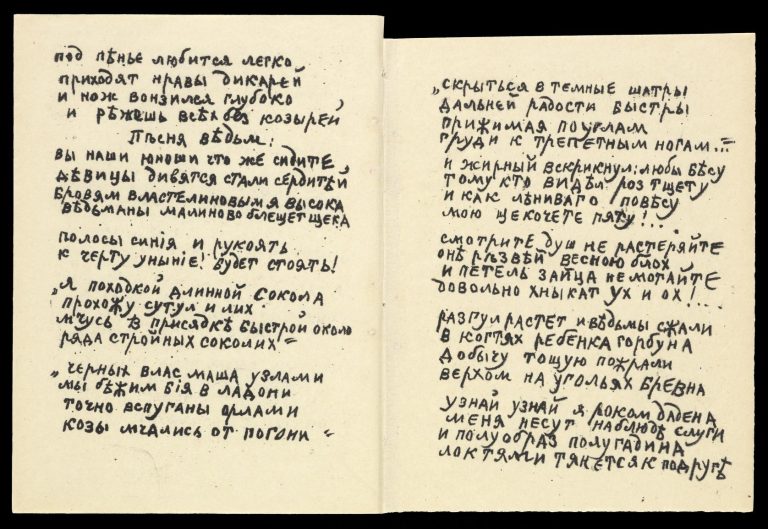 под пѣнье любится легко
приходят нравы дикарей
и нож вонзился глубоко
и рѣжешь всѣх без козырей
Пѣсня вѣдьм:
вы наши юноши что же сидите
дѣвицы дивятся стали сердитѣй
Бровям властелиновым я высока
вѣдьманы малиново блещет щека
полосы синія и рукоять
к черту уныніе! будет стоять!
„я походкой длинной сокола
прохожу сутул и лих
мчусь в присядкѣ быстрой около
ряда стройных соколих“=
„черных влас маша узлами
мы бѣжим бія в ладони
точно вспуганы орлами
козы мчались от погони“=
„скрыться в темные шатры
дальней радости быстры
прижимая по углам
груди к трепетным ногам...“=
и жирный вскрикнул: любы бѣсу
тому кто видѣл роз тщету
и как лѣниваго повѣсу
мою щекочете пяту!...
смотрите душ не растеряйте
онѣ рѣзвѣй весною блох
и петель зайца не мотайте
довольно хныкат ух и ох!...
разгул растет и вѣдьмы сжали
в когтях ребенка горбуна
добычу тощую пожрали
верхом на угольях бревна
узнай узнай я роком дадена
меня несут наблюдь слуги
и полуобраз полугадина
локтями тянется к подругѣ